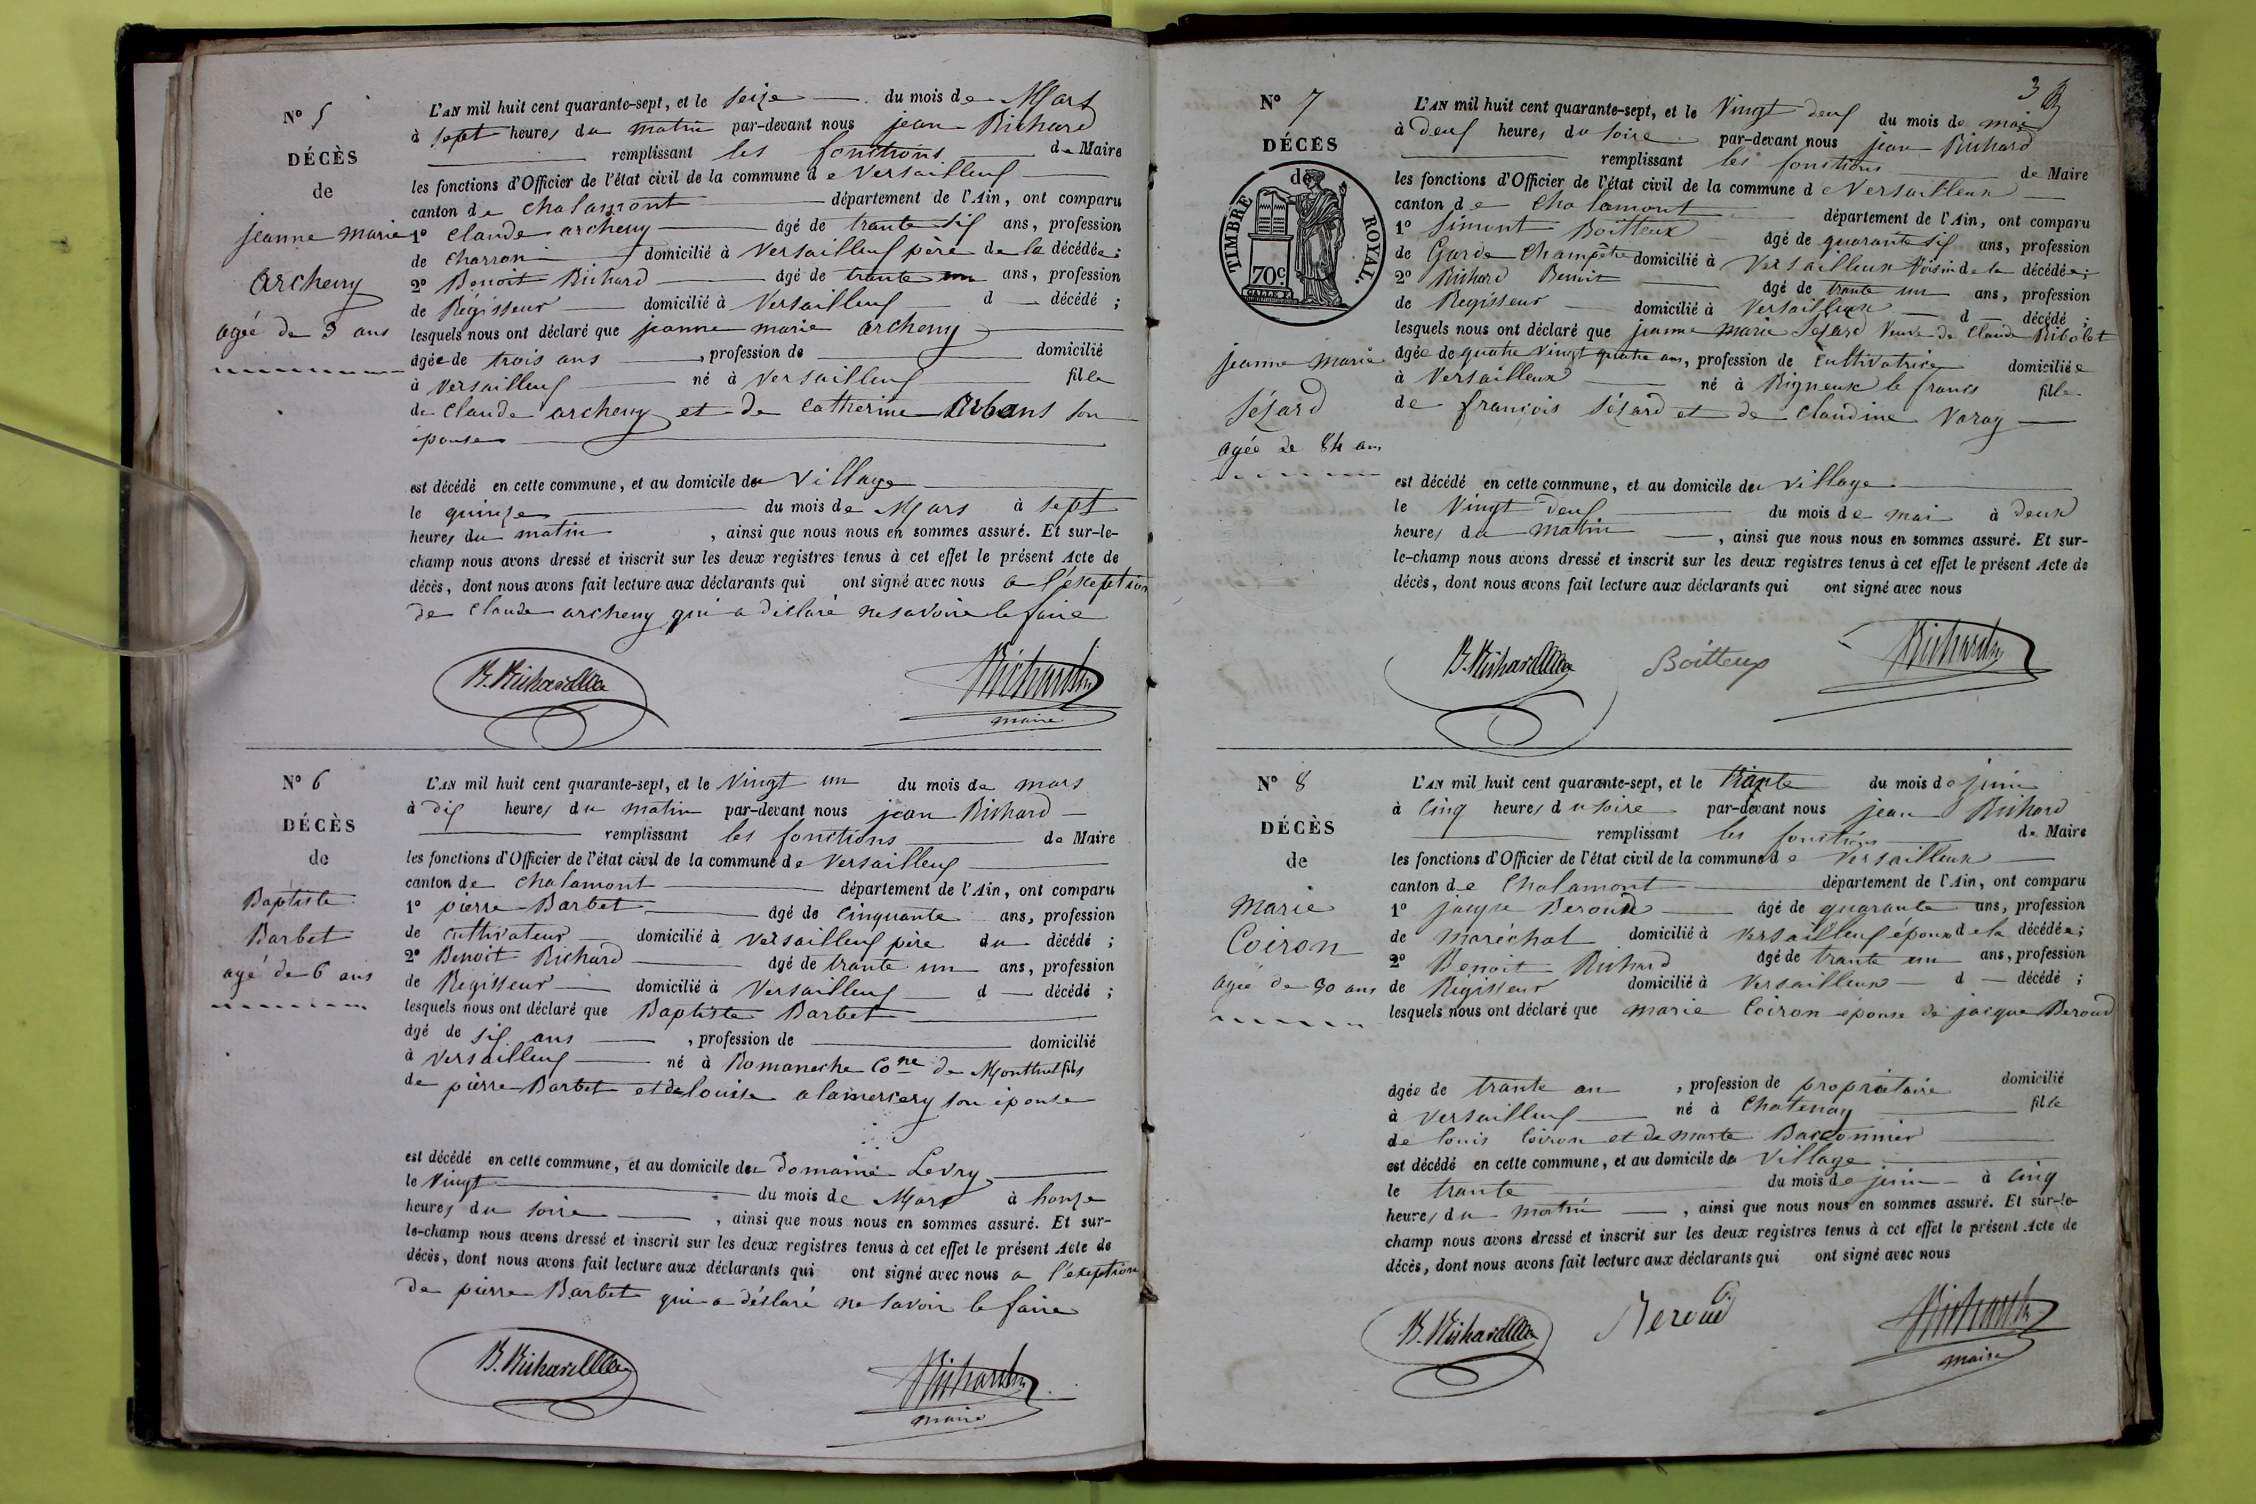 N° 5
DÉCÈS
de
jeanne marie
archeny
agée de 3 ans
L'AN mil huit cent quarante-sept, et le seize du mois de Mars
à sept heures du matin par-devant nous jean Richard
remplissant les fonctions de Maire
les fonctions d'Officier de l'état civil de la commune de Versailleux
canton de chalamont département de l'Ain, ont comparu
1° claude archeny âgé de trante six ans, profession
de charron domicilié à Versailleux père de la décédée ;
2° Benoit Richard âgé de trante un ans, profession
de Régisseur domicilié à Versailleux d décédé ;
lesquels nous ont déclaré que jeanne marie archeny
âgée de trois ans , profession de domicilié
à Versailleux né à Versailleux fille
de claude archeny et de catherine Orbans son
épouse
est décédé en cette commune, et au domicile du Village
le quinze du mois de Mars à sept
heures du matin , ainsi que nous nous en sommes assuré. Et sur-le-
champ nous avons dressé et inscrit sur les deux registres tenus à cet effet le présent Acte de
décès, dont nous avons fait lecture aux déclarants qui ont signé avec nous a l'exeption
de claude archeny qui a déclaré ne savoire le faire
B. Richard
Richard
maire
N° 6
DÉCÈS
de
Baptiste
Barbet
agé de 6 ans
L'AN mil huit cent quarante-sept, et le Vingt un du mois de mars
à dix heures du matin par-devant nous jean Richard
remplissant les fonctions de Maire
les fonctions d'Officier de l'état civil de la commune de Versailleux
canton de chalamont département de l'Ain, ont comparu
1° pierre Barbet âgé de cinquante ans, profession
de cultivateur domicilié à Versailleux père du décédé ;
2° Benoit Richard âgé de trante un ans, profession
de Régisseur domicilié à Versailleux d décédé ;
lesquels nous ont déclaré que Baptiste Barbet
âgé de six ans , profession de domicilié
à Versailleux né à Romaneche Cone de Montluel fils
de pierre Barbet et de louise alamercery son épouse
est décédé en cette commune, et au domicile du domaine Levry
le Vingt du mois de Mars à honze
heures du soire , ainsi que nous nous en sommes assuré. Et sur-
le-champ nous avons dressé et inscrit sur les deux registres tenus à cet effet le présent Acte de
décès, dont nous avons fait lecture aux déclarants qui ont signé avec nous a l'exeption
de pierre Barbet qui a déclaré ne savoir le faire
B. Richard
Richard
maire
3
N° 7
DÉCÈS
de
TIMBRE ROYAL.
70c
jeanne marie
Sézard
agée de 84 ans
L'AN mil huit cent quarante-sept, et le Vingt deux du mois de mai
à deux heures du soire par-devant nous jean Richard
remplissant les fonctions de Maire
les fonctions d'Officier de l'état civil de la commune de Versailleux
canton de chalamont département de l'Ain, ont comparu
1° Simont Boitteux âgé de quarante six ans, profession
de Garde Champêtre domicilié à Versailleux Voisin de la décédée ;
2° Richard Benoit âgé de trante un ans, profession
de Régisseur domicilié à Versailleux d décédé ;
lesquels nous ont déclaré que jeanne marie Sézard Veuve de Claude Ribolet
âgée de quatre Vingt quatre ans, profession de Cultivatrice domiciliée
à Versailleux né à Rigneux le francs fille
de françois Sézard et de claudine Varay
est décédé en cette commune, et au domicile du Village
le Vingt deux du mois de mai à deux
heures du matin , ainsi que nous nous en sommes assuré. Et sur-
le-champ nous avons dressé et inscrit sur les deux registres tenus à cet effet le présent Acte de
décès, dont nous avons fait lecture aux déclarants qui ont signé avec nous
B. Richard Boitteux Richard
N° 8
DÉCÈS
de
Marie
Coiron
agée de 30 ans
L'AN mil huit cent quarante-sept, et le trante du mois de juin
à cinq heures du soire par-devant nous jean Richard
remplissant les fonctions de Maire
les fonctions d'Officier de l'état civil de la commune de Versailleux
canton de Chalamont département de l'Ain, ont comparu
1° jacque Beroud âgé de quarante ans, profession
de maréchal domicilié à Versailleux époux de la décédée ;
2° Benoit Richard âgé de trante un ans, profession
de Régisseur domicilié à Versailleux d décédé ;
lesquels nous ont déclaré que marie Coiron épouse de jacque Beroud
âgée de trante an , profession de propriataire domicilié
à Versailleux né à Chatenay fille
de louis Coiron et de marte Bacconnier
est décédé en cette commune, et au domicile du Village
le trante du mois de juin à cinq
heures du matin , ainsi que nous nous en sommes assuré. Et sur-le-
champ nous avons dressé et inscrit sur les deux registres tenus à cet effet le présent Acte de
décès, dont nous avons fait lecture aux déclarants qui ont signé avec nous
B. Richard Beroud Richard
maire